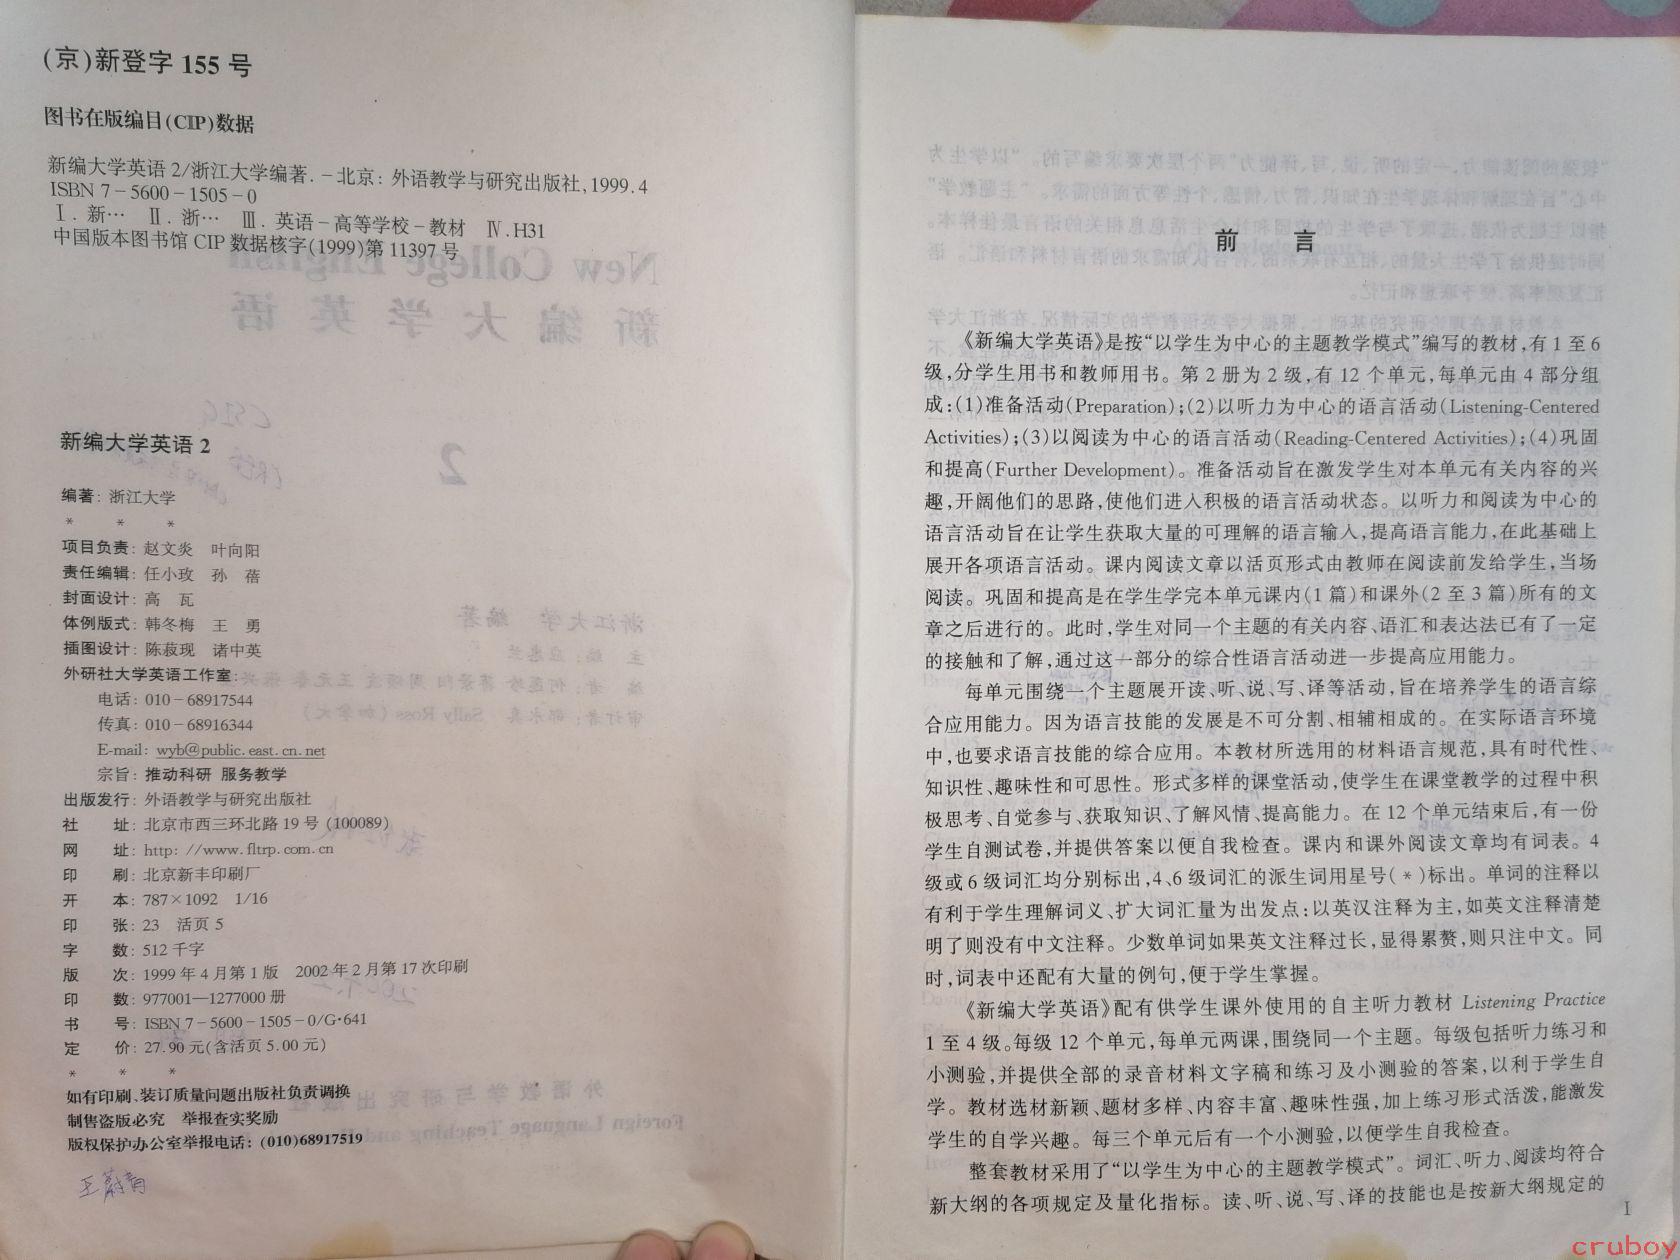 (京)新登字 155 号
图书在版编目(CIP)数据
新编大学英语 2/浙江大学编著. －北京: 外语教学与研究出版社,1999.4
ISBN 7－5600－1505－0
Ⅰ. 新… Ⅱ. 浙… Ⅲ. 英语－高等学校－教材 Ⅳ.H31
中国版本图书馆 CIP 数据核字(1999)第 11397 号
新编大学英语 2
编著: 浙江大学
* * *
项目负责: 赵文炎 叶向阳
责任编辑: 任小玫 孙 蓓
封面设计: 高 瓦
体例版式: 韩冬梅 王 勇
插图设计: 陈菽现 诸中英
外研社大学英语工作室:
电话: 010－68917544
传真: 010－68916344
E-mail: wyb@public.east.cn.net
宗旨: 推动科研 服务教学
出版发行: 外语教学与研究出版社
社 址: 北京市西三环北路 19 号 (100089)
网 址: http: //www.fltrp.com.cn
印 刷: 北京新丰印刷厂
开 本: 787×1092 1/16
印 张: 23 活页 5
字 数: 512 千字
版 次: 1999 年 4 月第 1 版 2002 年 2 月第 17 次印刷
印 数: 977001—1277000 册
书 号: ISBN 7－5600－1505－0/G·641
定 价: 27.90 元(含活页 5.00 元)
* * *
如有印刷、装订质量问题出版社负责调换
制售盗版必究 举报查实奖励
版权保护办公室举报电话: (010)68917519
前 言
《新编大学英语》是按“以学生为中心的主题教学模式”编写的教材,有 1 至 6
级,分学生用书和教师用书。第 2 册为 2 级,有 12 个单元,每单元由 4 部分组
成:(1)准备活动(Preparation);(2)以听力为中心的语言活动(Listening-Centered
Activities);(3)以阅读为中心的语言活动(Reading-Centered Activities);(4)巩固
和提高(Further Development)。准备活动旨在激发学生对本单元有关内容的兴
趣,开阔他们的思路,使他们进入积极的语言活动状态。以听力和阅读为中心的
语言活动旨在让学生获取大量的可理解的语言输入,提高语言能力,在此基础上
展开各项语言活动。课内阅读文章以活页形式由教师在阅读前发给学生,当场
阅读。巩固和提高是在学生学完本单元课内(1 篇)和课外(2 至 3 篇)所有的文
章之后进行的。此时,学生对同一个主题的有关内容、语汇和表达法已有了一定
的接触和了解,通过这一部分的综合性语言活动进一步提高应用能力。
每单元围绕一个主题展开读、听、说、写、译等活动,旨在培养学生的语言综
合应用能力。因为语言技能的发展是不可分割、相辅相成的。在实际语言环境
中,也要求语言技能的综合应用。本教材所选用的材料语言规范,具有时代性、
知识性、趣味性和可思性。形式多样的课堂活动,使学生在课堂教学的过程中积
极思考、自觉参与、获取知识、了解风情、提高能力。在 12 个单元结束后,有一份
学生自测试卷,并提供答案以便自我检查。课内和课外阅读文章均有词表。4
级或 6 级词汇均分别标出,4、6 级词汇的派生词用星号(*)标出。单词的注释以
有利于学生理解词义、扩大词汇量为出发点:以英汉注释为主,如英文注释清楚
明了则没有中文注释。少数单词如果英文注释过长,显得累赘,则只注中文。同
时,词表中还配有大量的例句,便于学生掌握。
《新编大学英语》配有供学生课外使用的自主听力教材 Listening Practice
1 至 4 级。每级 12 个单元,每单元两课,围绕同一个主题。每级包括听力练习和
小测验,并提供全部的录音材料文字稿和练习及小测验的答案,以利于学生自
学。教材选材新颖、题材多样、内容丰富、趣味性强,加上练习形式活泼,能激发
学生的自学兴趣。每三个单元后有一个小测验,以便学生自我检查。
整套教材采用了“以学生为中心的主题教学模式”。词汇、听力、阅读均符合
新大纲的各项规定及量化指标。读、听、说、写、译的技能也是按新大纲规定的
I
cruboy